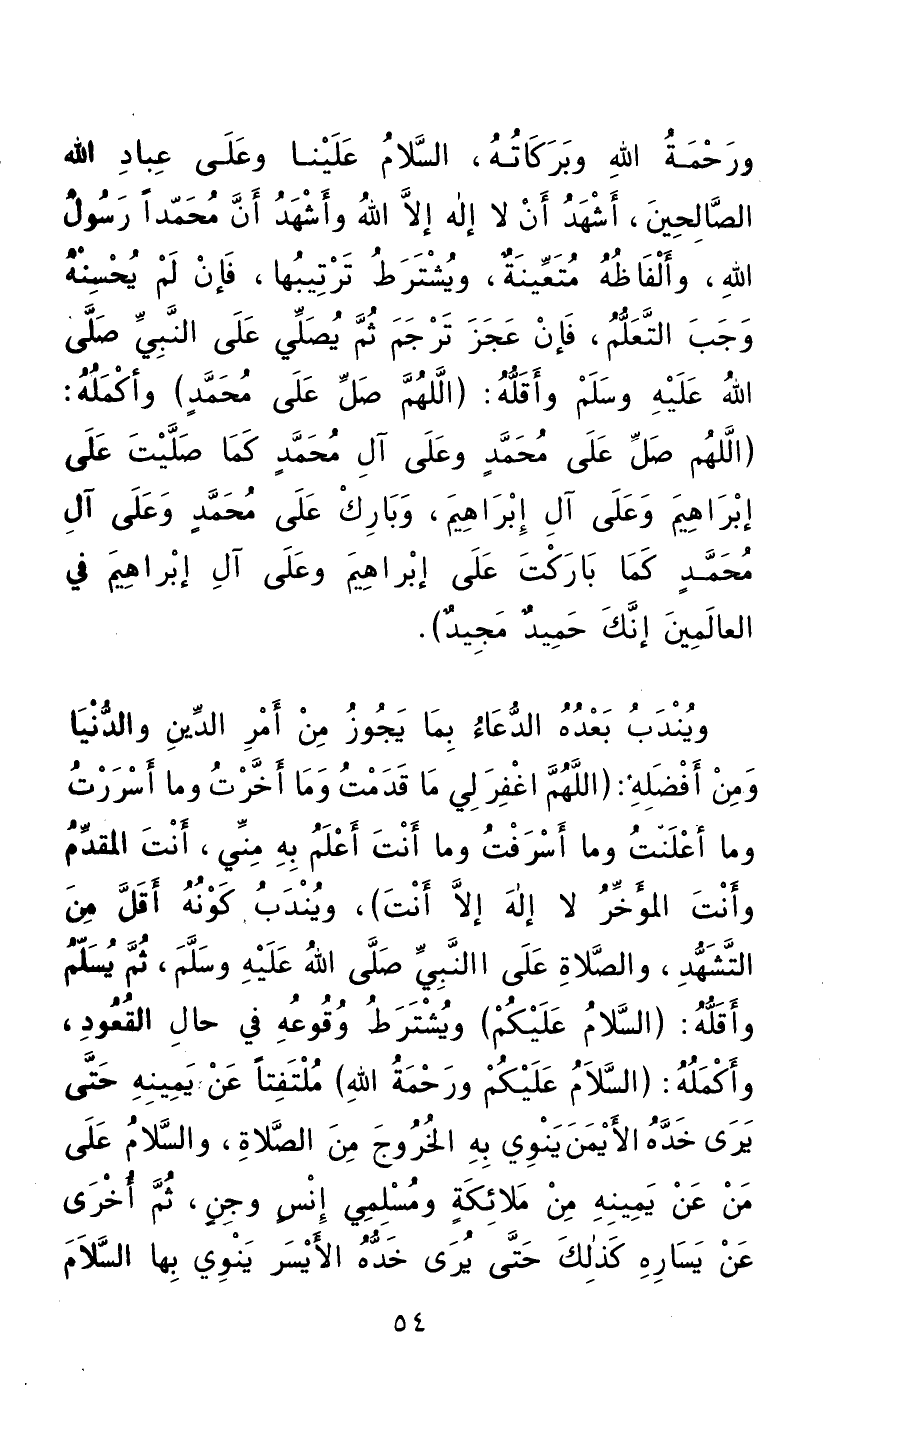 ورَحْمَـةُ اللهِ وبَرَكَاتُـهُ، السَّلامُ عَلَيْنـا وعَلَـى عِبادِ الله
الصَّالِحِينَ، أَشْهَدُ أَنْ لا إلٰه إلاَّ اللهُ وأَشْهَدُ أَنَّ مُحَمّداً رَسُولُ
اللهِ، وأَلْفَاظُهُ مُتَعَيِّنَةٌ، ويُشْتَرَطُ تَرْتِيبُها، فَإنْ لَمْ يُحْسِنْهُ
وَجَبَ التَّعَلُّمُ، فَإنْ عَجَزَ تَرْجَمَ ثُمَّ يُصَلِّي عَلَى النَّبِيِّ صَلَّى
اللهُ عَلَيْهِ وسَلَمْ وأَقَلُّهُ: (الَّلهُمَّ صَلِّ عَلَى مُحَمَّدٍ) وأكْمَلُهُ:
(الَّلهُم صَلِّ عَلَى مُحَمَّدٍ وعَلَى آلِ مُحَمَّدٍ كَمَا صَلَّيْتَ عَلَى
إبْرَاهِيمَ وَعَلَى آلِ إِبْرَاهِيمَ، وَبَارِكْ عَلَى مُحَمَّدٍ وَعَلَى آلِ
مُحَمَّـدٍ كَمَا بَارَكْتَ عَلَى إبْراهِيمَ وعَلَى آلِ إبْراهِيمَ في
العالَمِينَ إنَّكَ حَمِيدٌ مَجِيدٌ).
ويُنْدَبُ بَعْدَهُ الدُّعَاءُ بِمَا يَجُوزُ مِنْ أَمْرِ الدِّينِ والدُّنْيَا
وَمِنْ أَفْضَلِهِ: (اللَّهُمَّ اغْفِرَ لِي مَا قَدَمْتُ وَمَا أَخَّرْتُ وما أَسْرَرْتُ
وما أعْلَنْتُ وما أَسْرَفْتُ وما أَنْتَ أَعْلَمُ بِهِ مِنِّي، أَنْتَ المُقدِّمُ
وأَنْتَ المُؤَخِّرُ لا إلٰهَ إلاَّ أَنْتَ)، ويُنْدَبُ كَوْنُهُ أَقَلَّ مِنَ
التَّشَهُّدِ، والصَّلاةِ عَلَى االنَّبِيِّ صَلَّى اللهُ عَلَيْهِ وسَلَّمَ، ثُمَّ يُسَلِّمُ
وأَقَلُّهُ: (السَّلامُ عَلَيْكُمْ) ويُشْتَرَطُ وُقُوعُهِ في حالِ القُعُودِ،
وأَكْمَلُهُ: (السَّلاَمُ عَلَيْكُمْ ورَحْمَةُ اللهِ) مُلْتَفِتاً عَنْ يَمِينِهِ حَتَّى
يَرَى خَدَّهُ الأَيْمَنَ يَنْوِي بِهِ الخُرُوجَ مِنَ الصَّلاةِ، والسَّلامُ عَلَى
مَنْ عَنْ يَمِينِهِ مِنْ مَلائِكَةٍ ومُسْلِمِي إنْسٍ وجِنٍ، ثُمَّ أُخْرَى
عَنْ يَسَارِهِ كَذٰلِكَ حَتَّى يُرَى خَدُّهُ الأَيْسَر يَنْوِي بِها السَّلاَمَ
٥٤